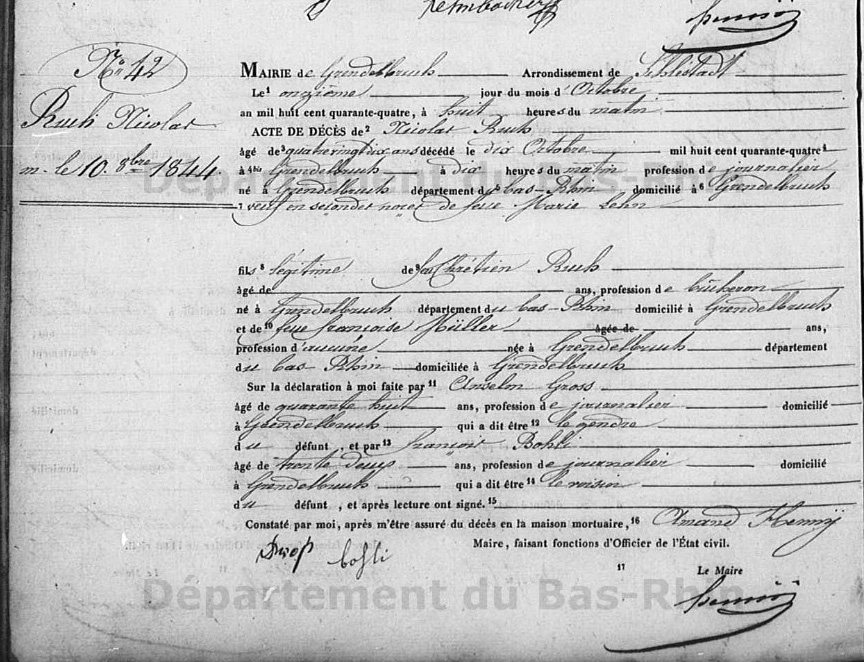 N° 42
Ruch Nicolas
m. le 10. 8bre 1844.
MAIRIE de Grendelbruch Arrondissement de Schlestadt
Le1 onzième jour du mois d'Octobre
an mil huit cent quarante-quatre, à huit heures du matin
ACTE DE DÉCÈS de2 Nicolas Ruch
âgé de3 quatrevingt dix ans décédé le dix Octobre mil huit cent quarante-quatre
à4 Grendelbruch à dix heures du matin profession de journalier
né à Grendelbruch département du bas-Rhin domicilié à6 Grendelbruch
7 veuf en secondes noces de feue Marie Lehn
fils8 légitime de9 feu Chrétien Ruch
âgé de ans, profession de bûcheron
né à Grendelbruch département du bas-Rhin domicilié à Grendelbruch
et de10 feue françoise Müller âgée de ans,
profession d'aucune née à Grendelbruch département
du bas-Rhin domiciliée à Grendelbruch
Sur la déclaration à moi faite par11 Anselm Gross
âgé de quarante huit ans, profession de journalier domicilié
à Grendelbruch qui a dit être12 le gendre
du défunt, et par13 françois Bohli
âgé de trente deux ans, profession de journalier domicilié
à Grendelbruch qui a dit être14 le voisin
du défunt, et après lecture ont signé.15
Constaté par moi, après m'être assuré du décès en la maison mortuaire,16 Amand Henny
Maire, faisant fonctions d'Officier de l'État civil.
bohli
17 Le Maire
Département du Bas-Rhin
Département du Bas-Rhin